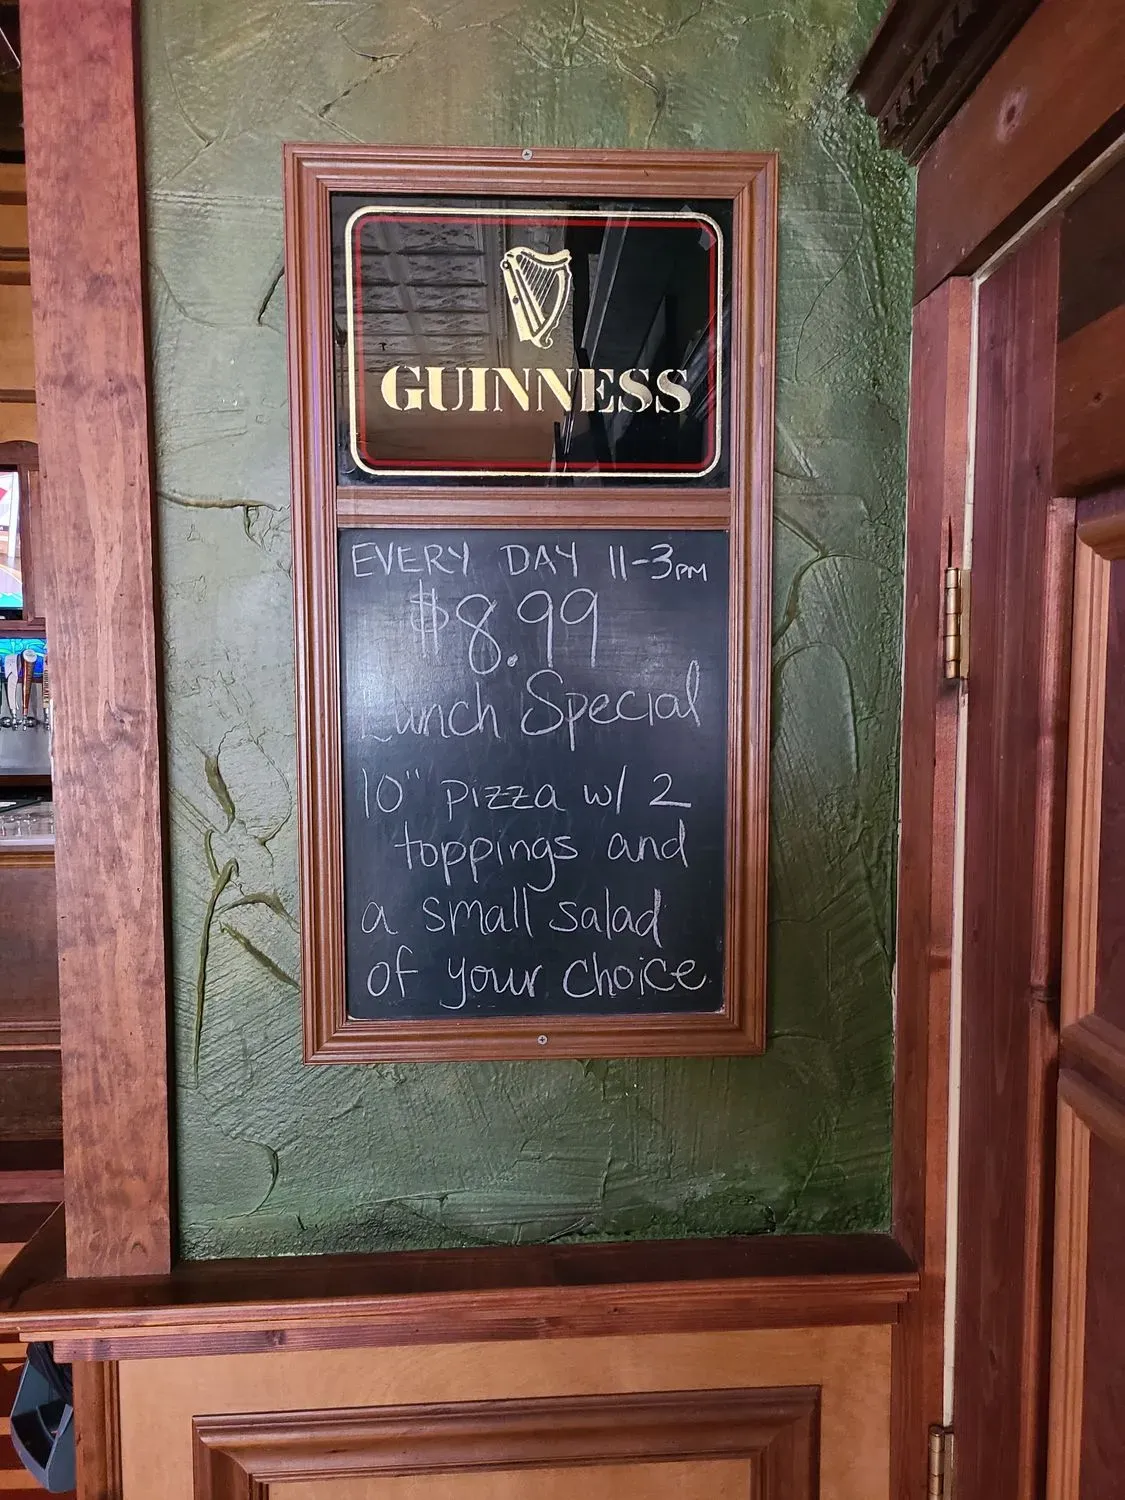 GUINNESS
EVERY DAY 11-3PM
$8.99
Lunch Special
10" pizza w/ 2
toppings and
a small salad
of your choice